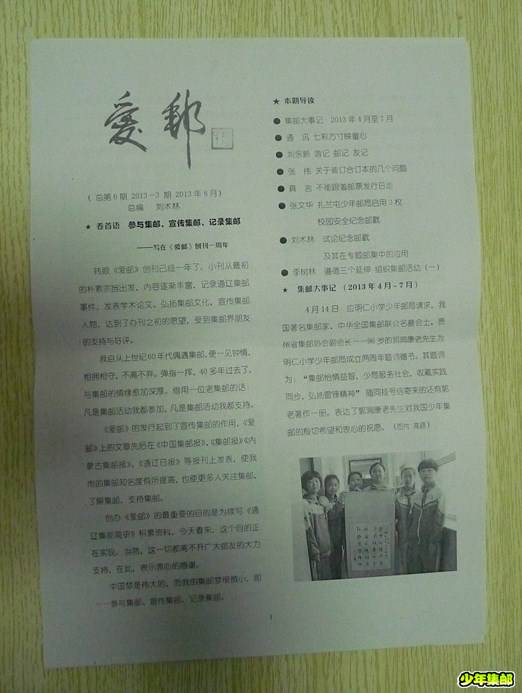 爱邮
（总第6期 2013-3期 2013年8月）
总编 刘术林
★ 卷首语 参与集邮、宣传集邮、记录集邮
——写在《爱邮》创刊一周年
转眼《爱邮》创刊已经一年了。小刊从最初
的朴素而出发，内容逐渐丰富，记录通辽集邮
事件，发表学术论文，弘扬集邮文化，宣传集邮
人物，达到了办刊之初的愿望，受到集邮界朋友
的支持与好评。
我自从上世纪60年代偶遇集邮，便一见钟情，
相拥相守，不离不弃。弹指一挥，40多年过去了，
与集邮的情缘愈加深厚。借用一位老集邮的话：
凡是集邮活动我都参加，凡是集邮活动我都支持。
《爱邮》的发行起到了宣传集邮的作用，《爱
邮》上的文章先后在《中国集邮报》、《集邮报》《内
蒙古集邮报》、《通辽日报》等报刊上发表，使我
市的集邮知名度有所提高，也使更多人关注集邮、
了解集邮、支持集邮。
创办《爱邮》的最重要的目的是为续写《通
辽集邮简史》积累资料，今天看来，这个目的正
在实现。当然，这一切都离不开广大邮友的大力
支持，在此，表示衷心的感谢。
中国梦是伟大的，而我的集邮梦很微小，即
——参与集邮、宣传集邮、记录集邮。
★ 本期导读
● 集邮大事记 2013年4月至7月
● 通 讯 七彩方寸映童心
● 刘东新 游记 邮记 友记
● 张 伟 关于装订合订本的几个问题
● 真 言 不能跟着邮票发行日走
● 张文华 扎兰屯少年邮局启用3枚
校园安全纪念邮戳
● 刘术林 试论纪念邮戳
及其在专题邮集中的应用
● 李树林 遵循三个延伸 组织集邮活动（一）
★ 集邮大事记（2013年4月-7月）
4月14日，应明仁小学少年邮局请求，我
国著名集邮家、中华全国集邮联合会名誉会士、贵
州省集邮协会副会长——96岁的郭润康老先生为
明仁小学少年邮局成立两周年题词赠书。其题词
为："集邮怡情益智，少局服务社会，收藏实践
同步，弘扬雷锋精神"随同挂号信寄来的还有郭
老著作一册。表达了郭润康老先生对我国少年集
邮的殷切希望和衷心的祝愿。
1
少年集邮